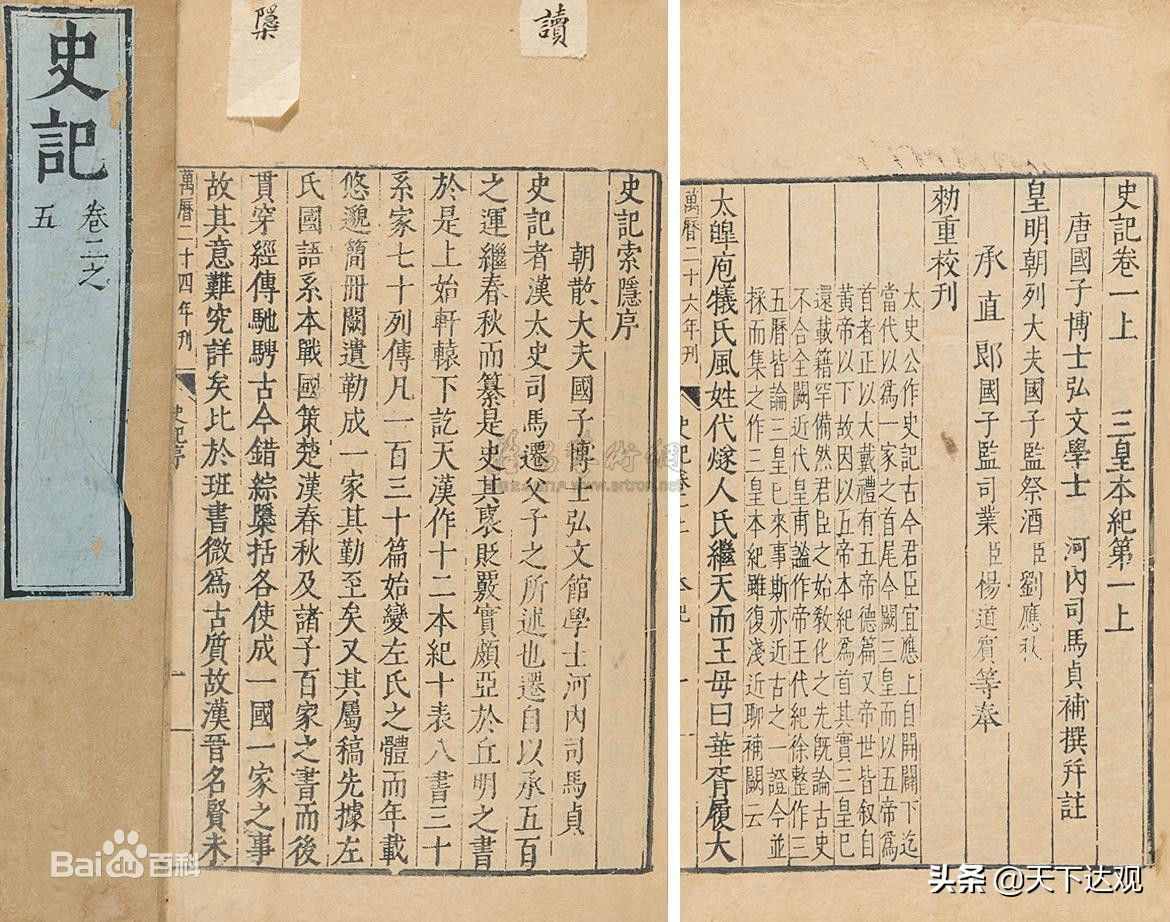 史記
卷二之
五
檃
讀
史記索隱序
朝散大夫國子博士弘文館學士河內司馬貞
史記者漢太史司馬遷父子之所述也遷自以承五百
之運繼春秋而纂是史其褒貶覈實頗亞於丘明之書
於是上始軒轅下訖天漢作十二本紀十表八書三十
系家七十列傳凡一百三十篇始變左氏之體而年載
悠邈簡冊闕遺勒成一家其勤至矣又其屬稿先據左
氏國語系本戰國策楚漢春秋及諸子百家之書而後
貫穿經傳馳騁古今錯綜檃括各使成一國一家之事
故其意難究詳矣比於班書微為古質故漢晉名賢未
萬曆二十四年刊
史記序
一
史記卷一上 三皇本紀第一上
唐國子博士弘文學士 河內司馬貞補撰并註
皇明朝列大夫國子監祭酒臣劉應秋
承直郎國子監司業臣楊道賓等奉
勑重校刊
太史公作史記古今君臣宜應上自開闢下迄
當代以為一家之首尾今闕三皇而以五帝為
首者正以大戴禮有五帝德篇又帝世皆叙自
黃帝以下故因以五帝本紀為首其實三皇已
還載籍罕備然君臣之始教化之先既論古史
不合全闕近代皇甫謐作帝王代紀徐整作三
五曆皆論三皇已來事斯亦近古之一證今並
採而集之作三皇本紀雖復淺近聊補闕云
太皞庖犧氏風姓代燧人氏繼天而王母曰華胥履大
萬曆二十六年刊
史記卷一上 本紀
一
Bai du 百科
www.artron.net
头条 @天下达观